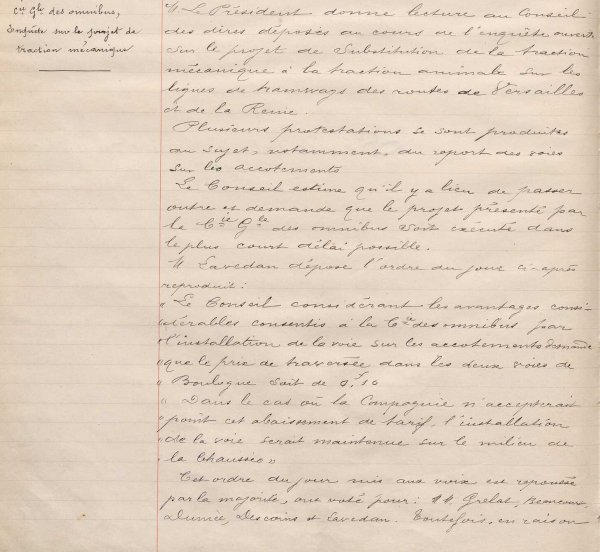 Cie Gle des omnibus,
Enquête sur le projet de
traction mécanique
M. Le Président donne lecture au Conseil
des dires déposés au cours de l'enquête ouverte
sur le projet de Substitution de la traction
mécanique à la traction animale sur les
lignes de tramways des routes de Versailles
et de la Reine.
Plusieurs protestations se sont produites
au sujet, notamment, du report des voies
sur les accotements
Le Conseil estime qu'il y a lieu de passer
outre et demande que le projet présenté par
la Cie Gle des omnibus soit exécuté dans
le plus court délai possible.
M Lavedan dépose l'ordre du jour ci-après
reproduit :
" Le Conseil considérant les avantages consi-
" dérables consentis à la Cie des omnibus par
" l'installation de la voie sur les accotements demande
" que le prix de traversée dans les deux voies de
" Boulogne soit de 0f,10
" Dans le cas où la Compagnie n'accepterait
" point cet abaissement de tarif, l'installation
" de la voie serait maintenue sur le milieu de
" la chaussée "
Cet ordre du jour mis aux voix est repoussé
par la majorité, ont voté pour : MM Grelat,
Descoins et Lavedan. Toutefois, en raison